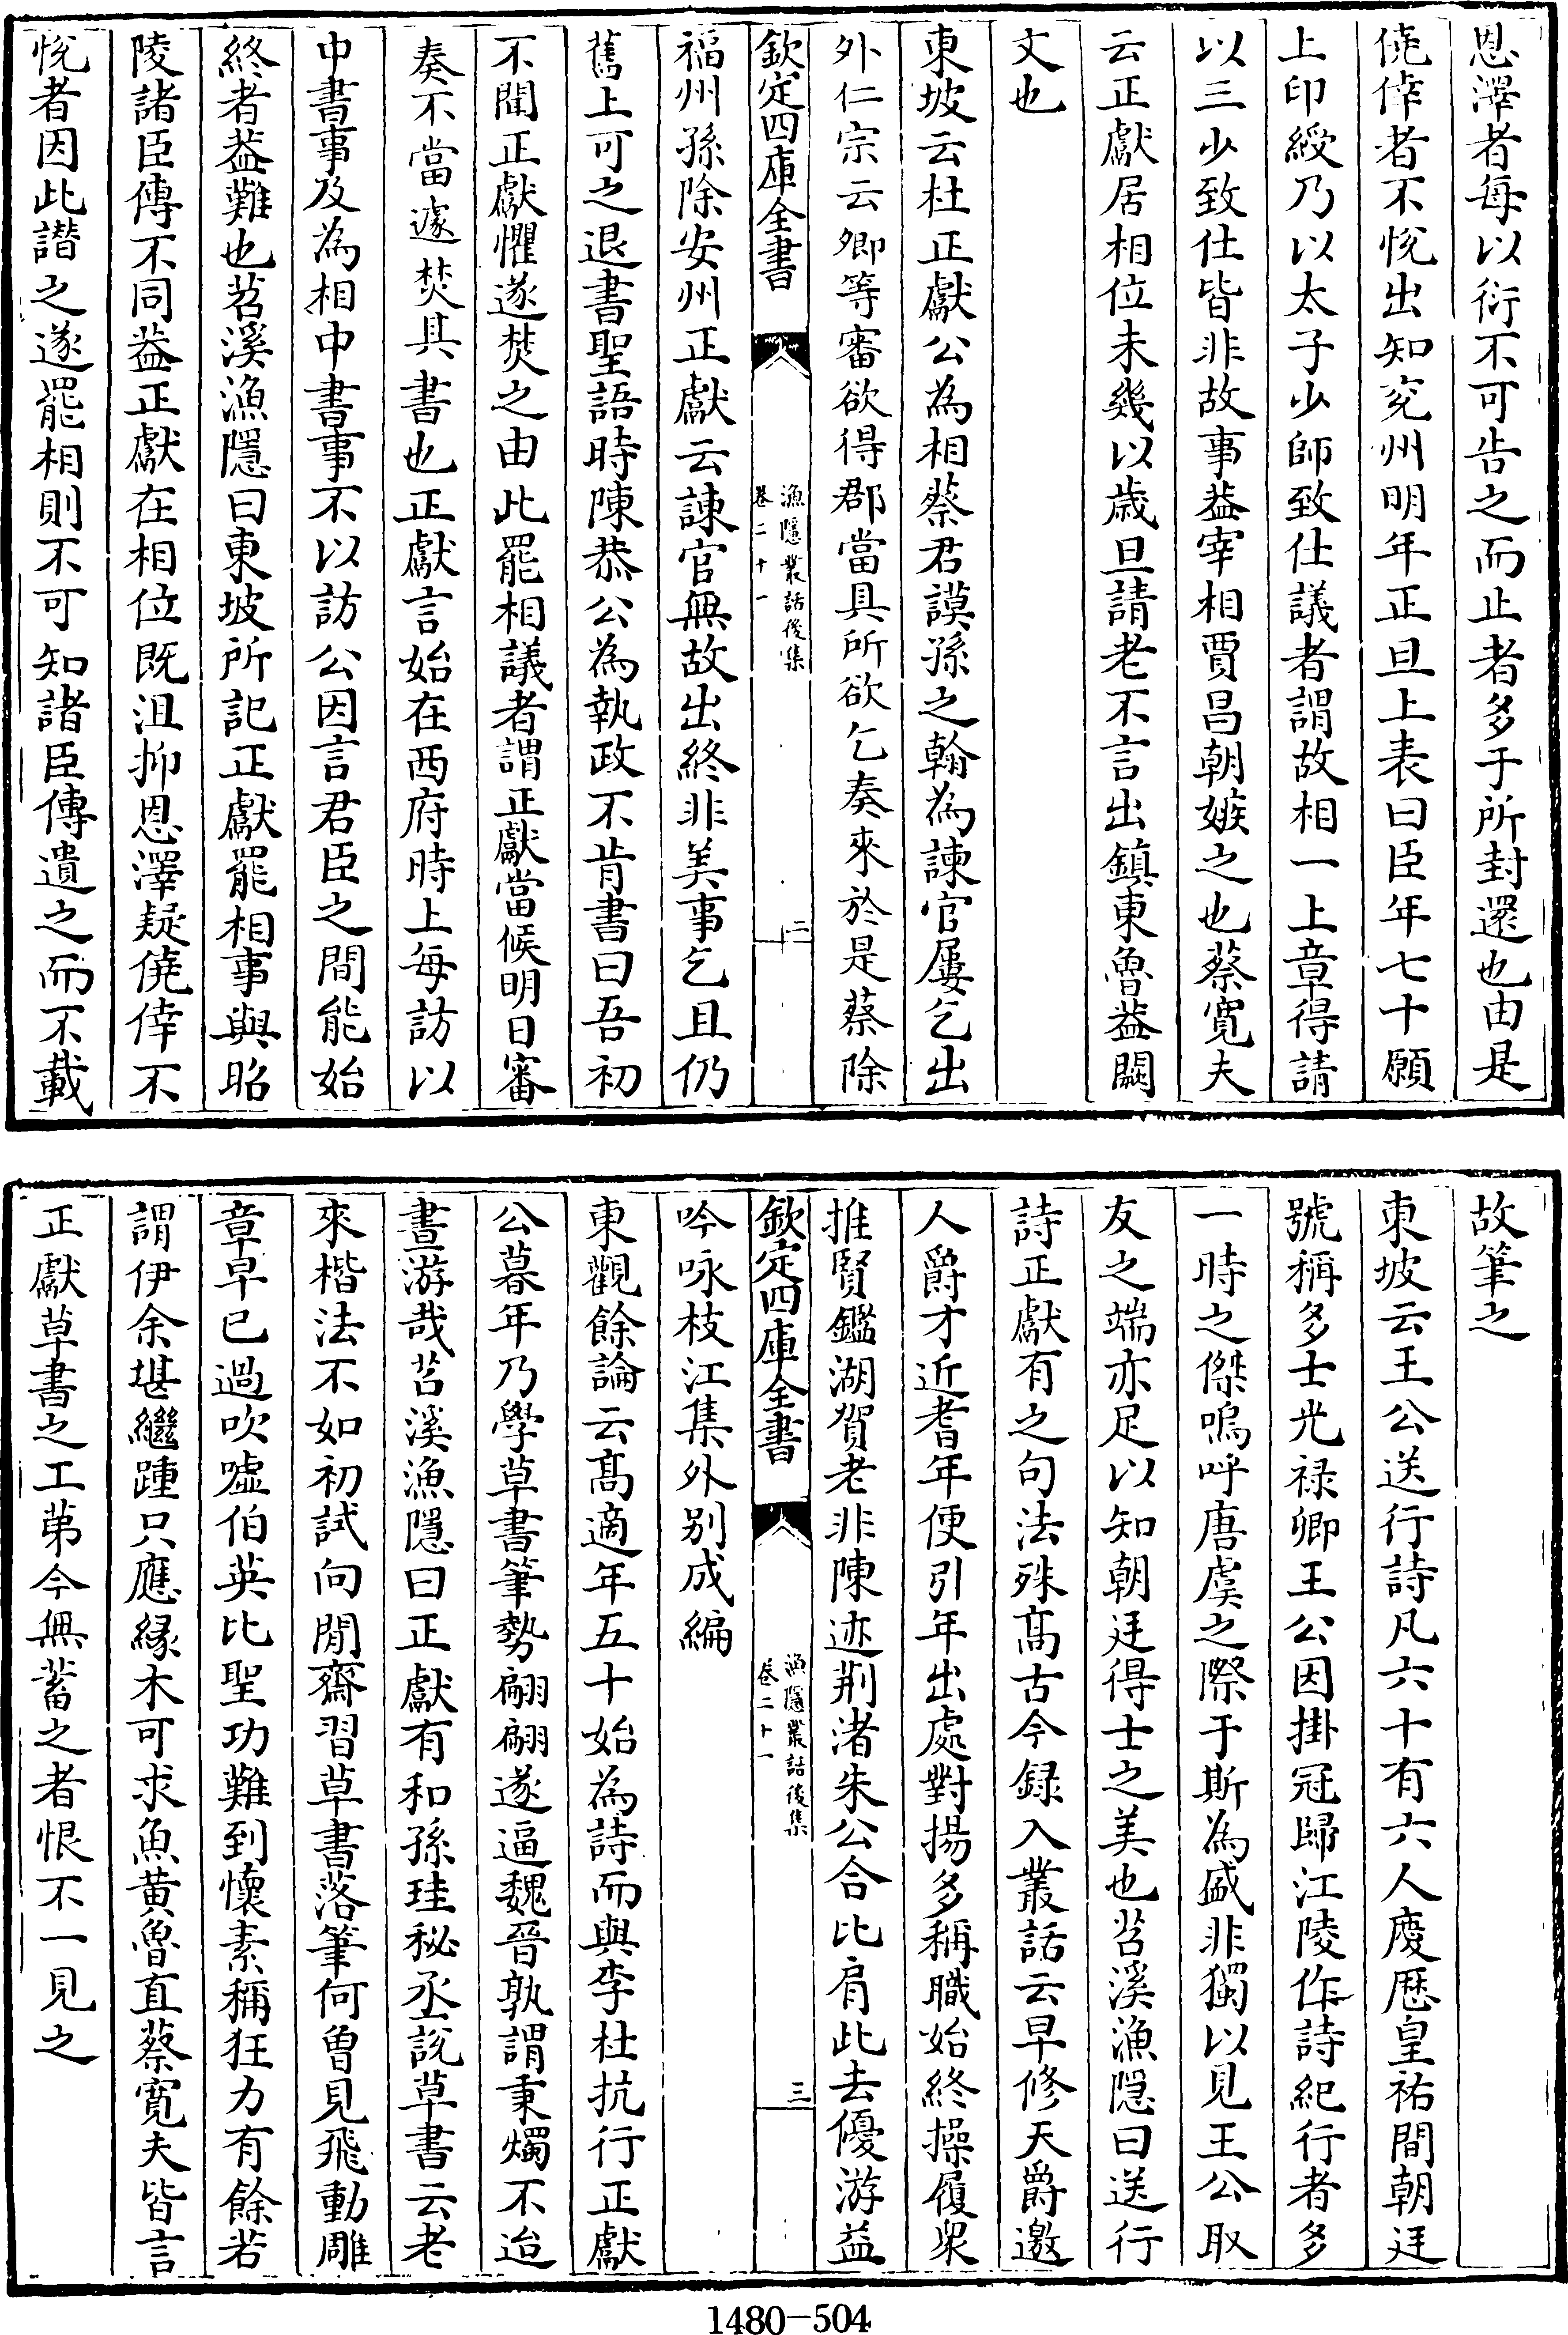 恩澤者每以衍不可告之而止者多于所封還也由是
僥倖者不悅出知兖州明年正旦上表曰臣年七十願
上印綬乃以太子少師致仕議者謂故相一上章得請
以三少致仕皆非故事葢宰相賈昌朝嫉之也蔡寬夫
云正獻居相位未幾以歲旦請老不言出鎮東魯葢闕
文也
東坡云杜正獻公為相蔡君謨孫之翰為諫官屢乞出
外仁宗云卿等審欲得郡當具所欲乞奏來於是蔡除
欽定四庫全書
漁隱叢話後集
卷二十一
二
福州孫除安州正獻云諫官無故出終非美事乞且仍
舊上可之退書聖語時陳恭公為執政不肯書曰吾初
不聞正獻懼遂焚之由此罷相議者謂正獻當候明日審
奏不當遽焚其書也正獻言始在西府時上每訪以
中書事及為相中書事不以訪公因言君臣之間能始
終者葢難也苕溪漁隱曰東坡所記正獻罷相事與昭
陵諸臣傳不同葢正獻在相位既沮抑恩澤疑僥倖不
悅者因此譖之遂罷相則不可知諸臣傳遺之而不載
故筆之
東坡云王公送行詩凡六十有六人慶厯皇祐間朝廷
號稱多士光禄卿王公因掛冠歸江陵作詩紀行者多
一時之傑嗚呼唐虞之際于斯為盛非獨以見王公取
友之端亦足以知朝廷得士之美也苕溪漁隱曰送行
詩正獻有之句法殊髙古今録入叢話云早修天爵邀
人爵才近耆年便引年出處對揚多稱職始終操履衆
推賢鑑湖賀老非陳迹荆渚朱公合比肩此去優游益
欽定四庫全書
漁隱叢話後集
卷二十一
三
吟咏枝江集外别成編
東觀餘論云髙適年五十始為詩而與李杜抗行正獻
公暮年乃學草書筆勢翩翩遂逼魏晉孰謂秉燭不迨
晝游哉苕溪漁隱曰正獻有和孫珪秘丞説草書云老
來楷法不如初試向閒齋習草書落筆何曽見飛動雕
章早已過吹噓伯英比聖功難到懷素稱狂力有餘若
謂伊余堪繼踵只應緣木可求魚黄魯直蔡寛夫皆言
正獻草書之工苐今無蓄之者恨不一見之
1480-504